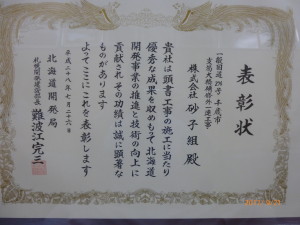 表彰状
一般国道274号 千歳市
株式会社 砂子組 殿
貴社は頭書工事の施工に当たり
優秀な成果を収めもって北海道
開発事業の推進と技術の向上に
貢献され その功績は誠に顕著な
ものがあります
よってここにこれを表彰します
平成二十八年七月二十六日
北海道開発局
札幌開発建設部長 難波江完三